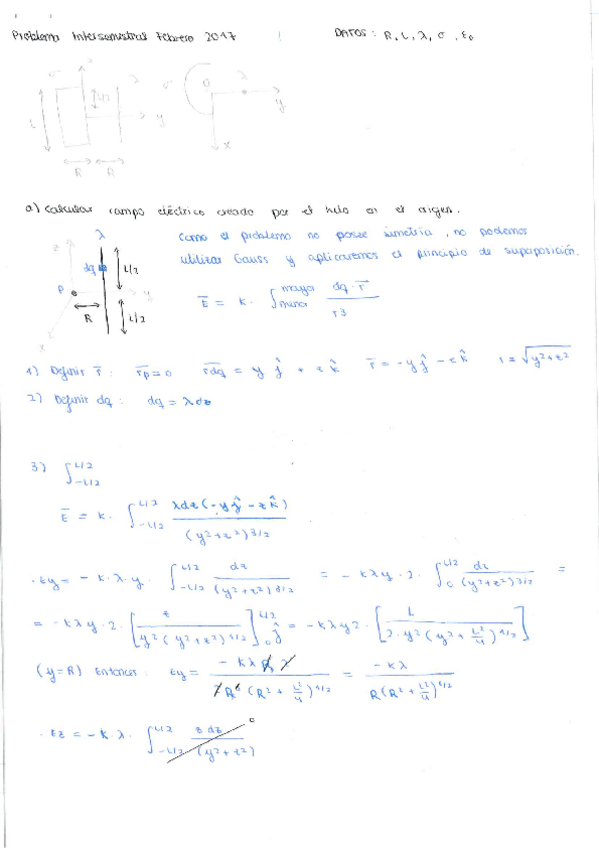 Problema Intersemestral Febrero 2017
DATOS: R, L, λ, σ, ε₀
σ
λ
z
L
L/2
y
R
R
σ
λ
y
x
a) Calcular campo eléctrico creado por el hilo en el origen.
z
λ
dq
L/2
P
y
R
L/2
x
Como el problema no posee simetría, no podemos
utilizar Gauss y aplicaremos el principio de superposición.
E̅ = K · ∫ dq · r̅ / r3
1) Definir r̅: r̅p=0 r̅dq = y ĵ + z k̂ r̅ = -y ĵ - z k̂ r = √(y²+z²)
2) Definir dq: dq = λdz
3) ∫_{-L/2}^{L/2}
E̅ = K · ∫_{-L/2}^{L/2} λdz(-y ĵ - z k̂) / (y²+z²)^{3/2}
· Ey = - K · λ · y · ∫_{-L/2}^{L/2} dz / (y²+z²)^{3/2} = - Kλy · 2 · ∫_{0}^{L/2} dz / (y²+z²)^{3/2} =
= -Kλy · 2 · [z / y²(y²+z²)^{1/2}]_{0}^{L/2} ĵ = -Kλy2 · [L / 2·y²(y²+L²/4)^{1/2}]
(y=R) Entonces: Ey = -KλRL / R²(R²+L²/4)^{1/2} = -Kλ / R(R²+L²/4)^{1/2}
· Ez = -K·λ · ∫_{-L/2}^{L/2} z dz / (y²+z²) 0